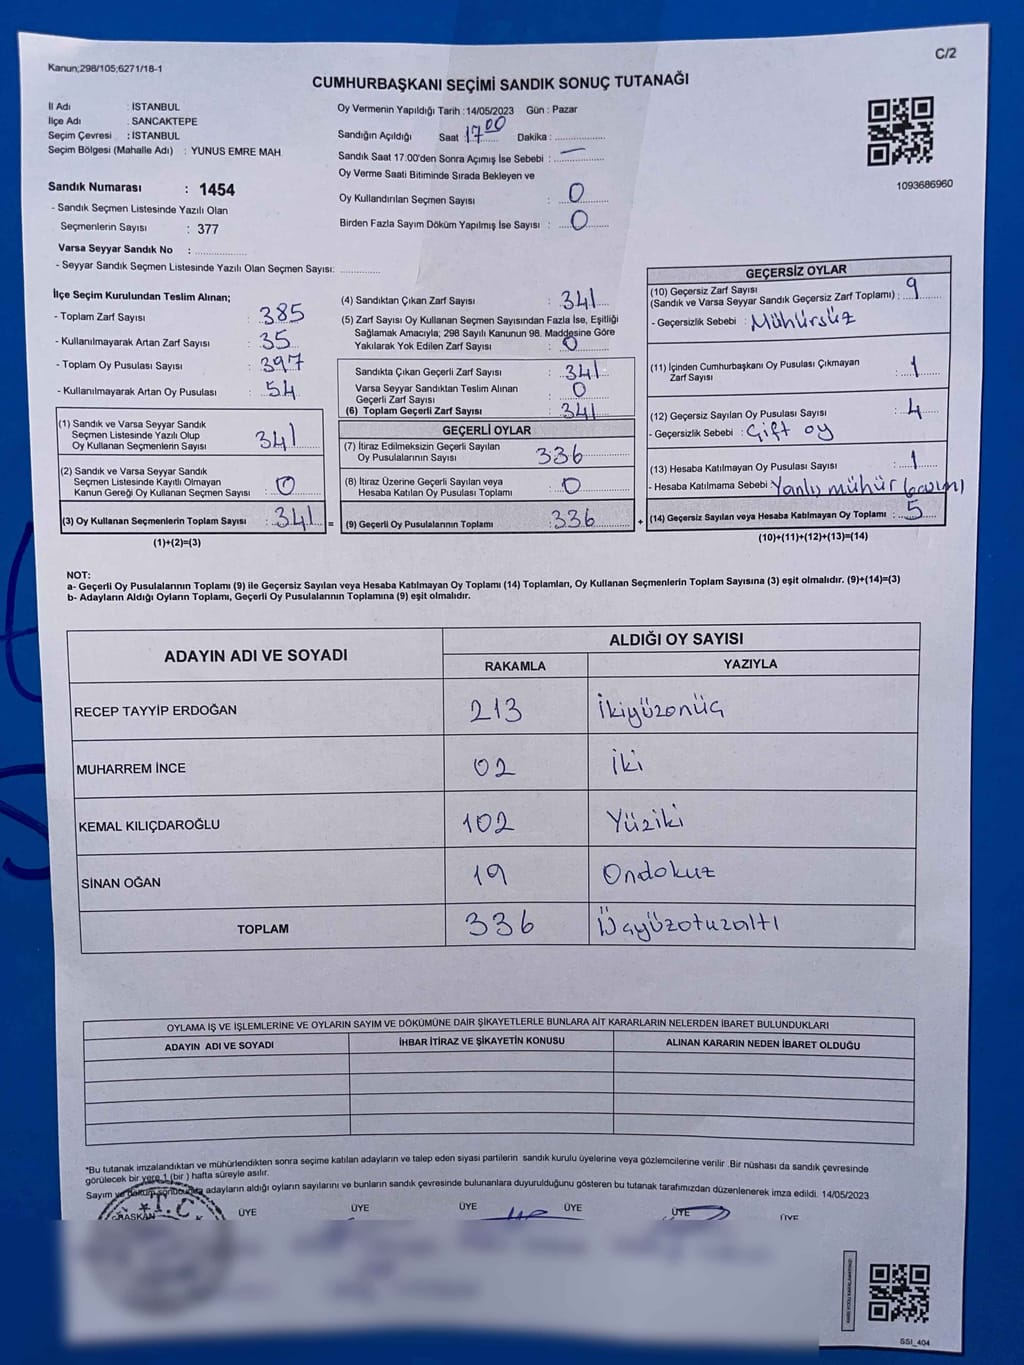 Kanun;298/105;6271/18-1
C/2
CUMHURBAŞKANI SEÇİMİ SANDIK SONUÇ TUTANAĞI
İl Adı : İSTANBUL
İlçe Adı : SANCAKTEPE
Seçim Çevresi : İSTANBUL
Seçim Bölgesi (Mahalle Adı) : YUNUS EMRE MAH.
Sandık Numarası : 1454
- Sandık Seçmen Listesinde Yazılı Olan
Seçmenlerin Sayısı : 377
Varsa Seyyar Sandık No :
- Seyyar Sandık Seçmen Listesinde Yazılı Olan Seçmen Sayısı:
Oy Vermenin Yapıldığı Tarih : 14/05/2023 Gün : Pazar
Sandığın Açıldığı Saat 17.00 Dakika :
Sandık Saat 17:00'den Sonra Açımış İse Sebebi : —
Oy Verme Saati Bitiminde Sırada Bekleyen ve
Oy Kullandırılan Seçmen Sayısı : 0
Birden Fazla Sayım Döküm Yapılmış İse Sayısı : 0
1093686960
İlçe Seçim Kurulundan Teslim Alınan;
- Toplam Zarf Sayısı : 385
- Kullanılmayarak Artan Zarf Sayısı : 35
- Toplam Oy Pusulası Sayısı : 397
- Kullanılmayarak Artan Oy Pusulası : 54
(1) Sandık ve Varsa Seyyar Sandık
Seçmen Listesinde Yazılı Olup
Oy Kullanan Seçmenlerin Sayısı : 341
(2) Sandık ve Varsa Seyyar Sandık
Seçmen Listesinde Kayıtlı Olmayan
Kanun Gereği Oy Kullanan Seçmen Sayısı : 0
(3) Oy Kullanan Seçmenlerin Toplam Sayısı : 341 =
(1)+(2)=(3)
(4) Sandıktan Çıkan Zarf Sayısı : 341
(5) Zarf Sayısı Oy Kullanan Seçmen Sayısından Fazla İse, Eşitliği
Sağlamak Amacıyla; 298 Sayılı Kanunun 98. Maddesine Göre
Yakılarak Yok Edilen Zarf Sayısı : 0
Sandıkta Çıkan Geçerli Zarf Sayısı : 341
Varsa Seyyar Sandıktan Teslim Alınan
Geçerli Zarf Sayısı : 0
(6) Toplam Geçerli Zarf Sayısı : 341
GEÇERLİ OYLAR
(7) İtiraz Edilmeksizin Geçerli Sayılan
Oy Pusulalarının Sayısı : 336
(8) İtiraz Üzerine Geçerli Sayılan veya
Hesaba Katılan Oy Pusulası Toplamı : 0
(9) Geçerli Oy Pusulalarının Toplamı : 336 +
GEÇERSİZ OYLAR
(10) Geçersiz Zarf Sayısı
(Sandık ve Varsa Seyyar Sandık Geçersiz Zarf Toplamı) : 9
- Geçersizlik Sebebi : Mühürsüz
(11) İçinden Cumhurbaşkanı Oy Pusulası Çıkmayan
Zarf Sayısı : 1
(12) Geçersiz Sayılan Oy Pusulası Sayısı : 4
- Geçersizlik Sebebi : Çift oy
(13) Hesaba Katılmayan Oy Pusulası Sayısı : 1
- Hesaba Katılmama Sebebi : Yanlış mühür basımı
(14) Geçersiz Sayılan veya Hesaba Katılmayan Oy Toplamı : 5
(10)+(11)+(12)+(13)=(14)
NOT:
a- Geçerli Oy Pusulalarının Toplamı (9) ile Geçersiz Sayılan veya Hesaba Katılmayan Oy Toplamı (14) Toplamları, Oy Kullanan Seçmenlerin Toplam Sayısına (3) eşit olmalıdır. (9)+(14)=(3)
b- Adayların Aldığı Oyların Toplamı, Geçerli Oy Pusulalarının Toplamına (9) eşit olmalıdır.
ADAYIN ADI VE SOYADI
ALDIĞI OY SAYISI
RAKAMLA YAZIYLA
RECEP TAYYİP ERDOĞAN 213 İkiyüzonüç
MUHARREM İNCE 02 İki
KEMAL KILIÇDAROĞLU 102 Yüziki
SİNAN OĞAN 19 Ondokuz
TOPLAM 336 Üçyüzotuzaltı
OYLAMA İŞ VE İŞLEMLERİNE VE OYLARIN SAYIM VE DÖKÜMÜNE DAİR ŞİKAYETLERLE BUNLARA AİT KARARLARIN NELERDEN İBARET BULUNDUKLARI
ADAYIN ADI VE SOYADI İHBAR İTİRAZ VE ŞİKAYETİN KONUSU ALINAN KARARIN NEDEN İBARET OLDUĞU
*Bu tutanak imzalandıktan ve mühürlendikten sonra seçime katılan adayların ve talep eden siyasi partilerin sandık kurulu üyelerine veya gözlemcilerine verilir .Bir nüshası da sandık çevresinde
görülecek bir yere 1 (bir ) hafta süreyle asılır.
Sayım ve döküm sonucunda adayların aldığı oyların sayılarını ve bunların sandık çevresinde bulunanlara duyurulduğunu gösteren bu tutanak tarafımızdan düzenlenerek imza edildi. 14/05/2023
T.C
BAŞKAN ÜYE ÜYE ÜYE ÜYE ÜYE ÜYE
SSİ_404